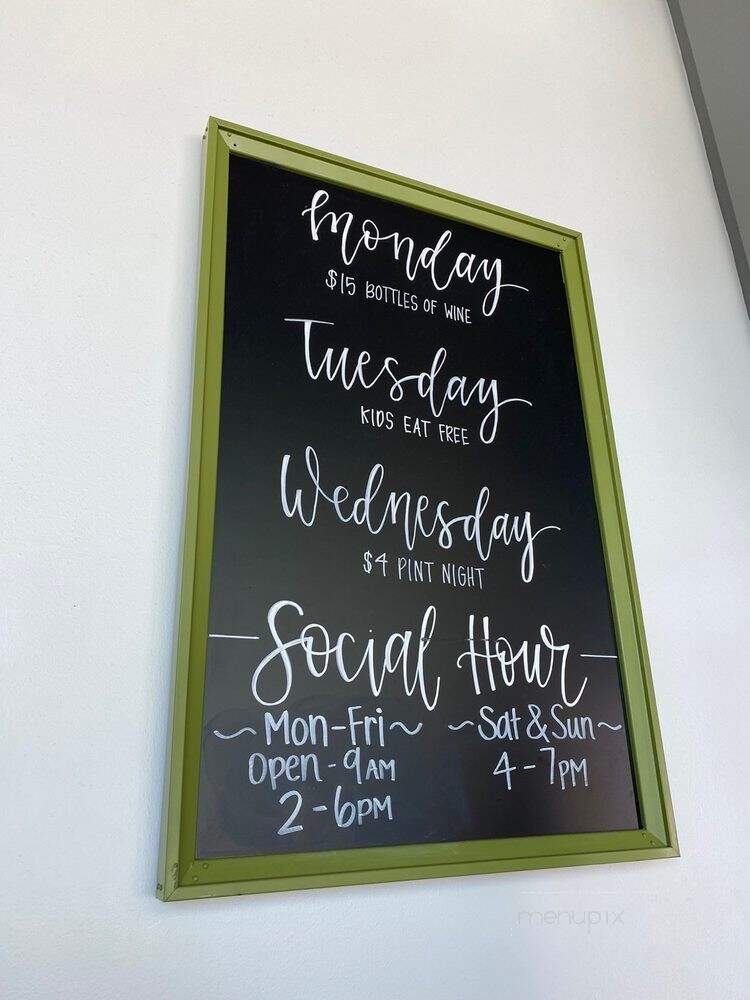 Monday
$15 BOTTLES OF WINE
Tuesday
KIDS EAT FREE
Wednesday
$4 PINT NIGHT
Social Hour
~Mon-Fri~
Open - 9AM
2 - 6PM
~Sat & Sun~
4 - 7PM
menupix